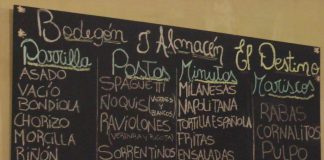 Bodegón y Almacén El Destino
Parrilla
ASADO
VACÍO
BONDIOLA
CHORIZO
MORCILLA
RIÑON
Pastas
SPAGUETTI
ÑOQUIS
RAVIOLONES
SORRENTINOS
Minutas
MILANESAS
NAPOLITANA
TORTILLA ESPAÑOLA
FRITAS
ENSALADAS
Mariscos
RABAS
CORNALITOS
PULPO